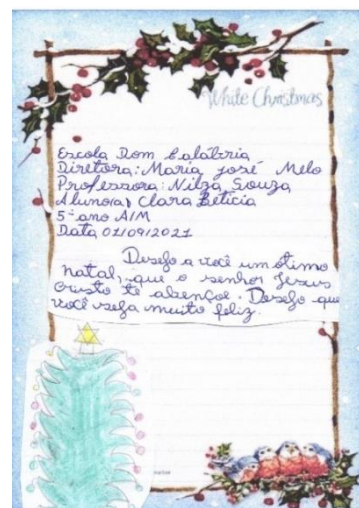 White Christmas
Escola Dom Calábria
Diretora: Maria José Melo
Professora: Nilza Souza
Aluno(a) Clara Beticia
5º ano A/M
Data 01/09/2021
Desejo a você um ótimo
natal, que o senhor Jesus
Cristo te abençoe. Desejo que
você seja muito feliz.